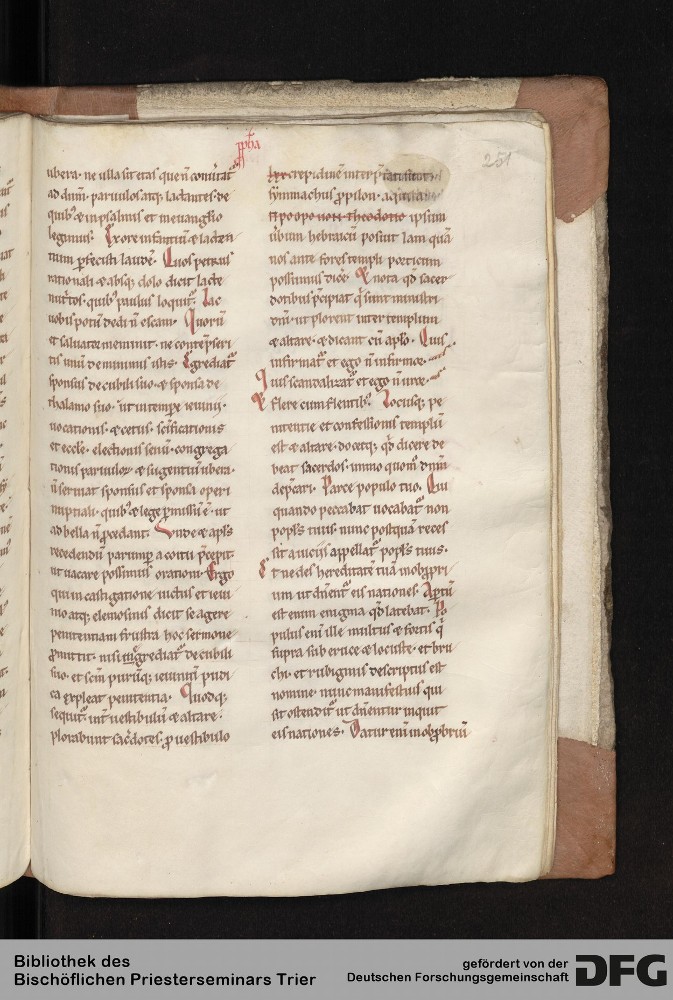 pphã
251
ubera· ne ulla sit etas que ñ conuťat᷑
ad dñm· paruulos atq; lactantes· de
quib; & in psalmis et in euanglio
legimus· Ex ore infantiũ & lacten
tium perfecisti laudẽ· Quos petrus
rationali & absq; dolo dicit lacte
nut̓tos· quib; paulus loquit᷑· Lac
uobis potũ dedi ñ escam· Quorũ
et saluator meminit· ne contẽpseri
tis unũ de minimis istis· Egrediat᷑
sponsus de cubili suo· & sponsa de
thalamo suo· ut in tempore ieiunii·
uocationis· & cetus· scificationis
et eccle· electionis senũ· congrega
tionis paruuloꝝ & sugentiũ ubera·
ñ seruiat sponsus et sponsa operi
nuptiali· quib; & lege p̃missũ ẽ· ut
ad bella ñ p̃cedant· Unde & apłs
recedendũ parumper a coitu p̃cepit·
ut uacare possimus orationi· Ergo
qui in castigatione uictus et ieiu
nio atq; elemosinis dicit se agere
penitentiam frustra hoc sermone
p̃mittit· nisi egrediat᷑ de cubili
suo· et scm̃ purũq; ieiuniũ pudi
ca expleat penitentia· Quodq;
sequit᷑· int̓ uestibulũ & altare·
plorabunt sacdotes· ꝓ uestibulo
symmachus ꝓpilon·
non theodotio ipsum
ubum hebraicũ posuit lam quã
nos ante fores templi poeticum
possumus dicẽ· Et nota qđ sacer
dotibus p̃cipiat᷑ q̃ sunt ministri
dñi· ut plorent inter templum
& altare· & dicant cũ apło· Quis
infirmat᷑ et ego ñ infirmor·
Quis scandalizat᷑ et ego ñ uror·
Et flere cum flentib;· Locusq; pe
nitentie et confessionis templũ
est & altare· docetq; qđ dicere de
beat sacerdos· immo quom̃ dñm
dep̃cari· Parce populo tuo· Qui
quando peccabat uocabat᷑ non
popłs tuus· nunc postquã reces
sit a uiciis appellat᷑ popłs tuus·
Et ne des hereditatẽ tuã in obꝓpri
um ut dñent᷑ eis nationes· Aptũ
est enim enigma qđ latebat· Po
pulus eni ille multus & fortis q̃
supra sub eruce & locuste· et bru
chi· et rubiginis descriptus est
nomine· nunc manifestius qui
sit ostendit᷑ ut dñentur inquit
eis nationes· Datur eni in obꝓbriũ
Bibliothek des
Bischöflichen Priesterseminars Trier
gefördert von der
Deutschen Forschungsgemeinschaft
DFG